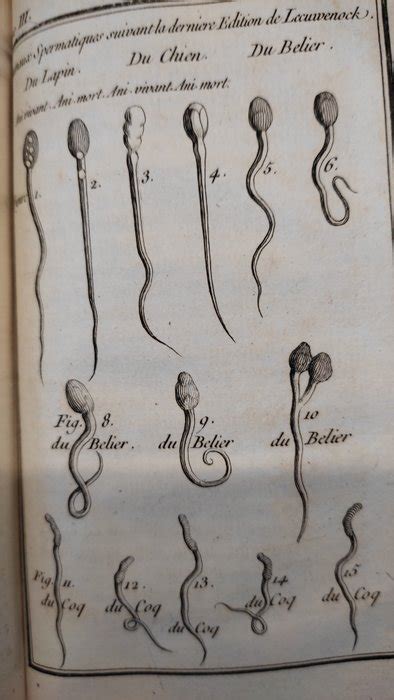 III.
Spermatiques suivant la derniere Edition de Leeuwenock.
Du Lapin. Du Chien. Du Belier.
vivant. Ani. mort. Ani. vivant. Ani. mort.
1. 2. 3. 4. 5. 6.
Fig. 8. 9. 10
du Belier. du Belier du Belier
Fig. 11. 12. 13. 14 15
du Coq du Coq du Coq du Coq du Coq